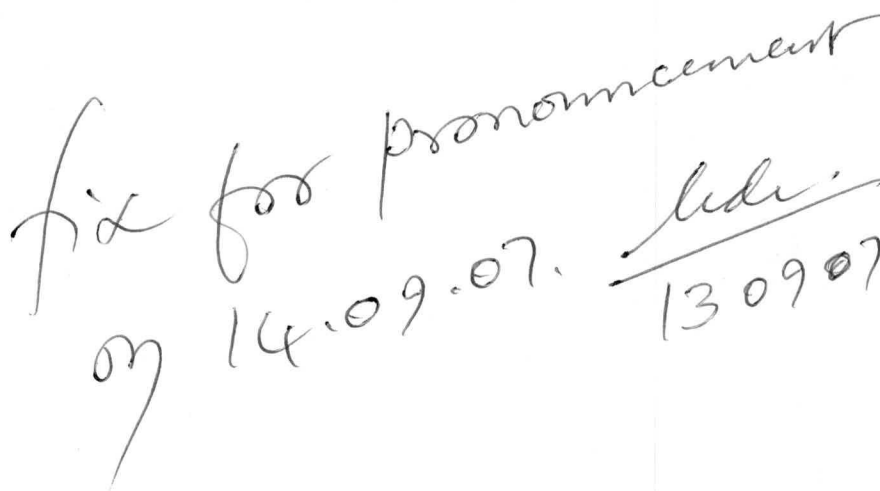 fix for pronouncement
on 14.09.07.
130907